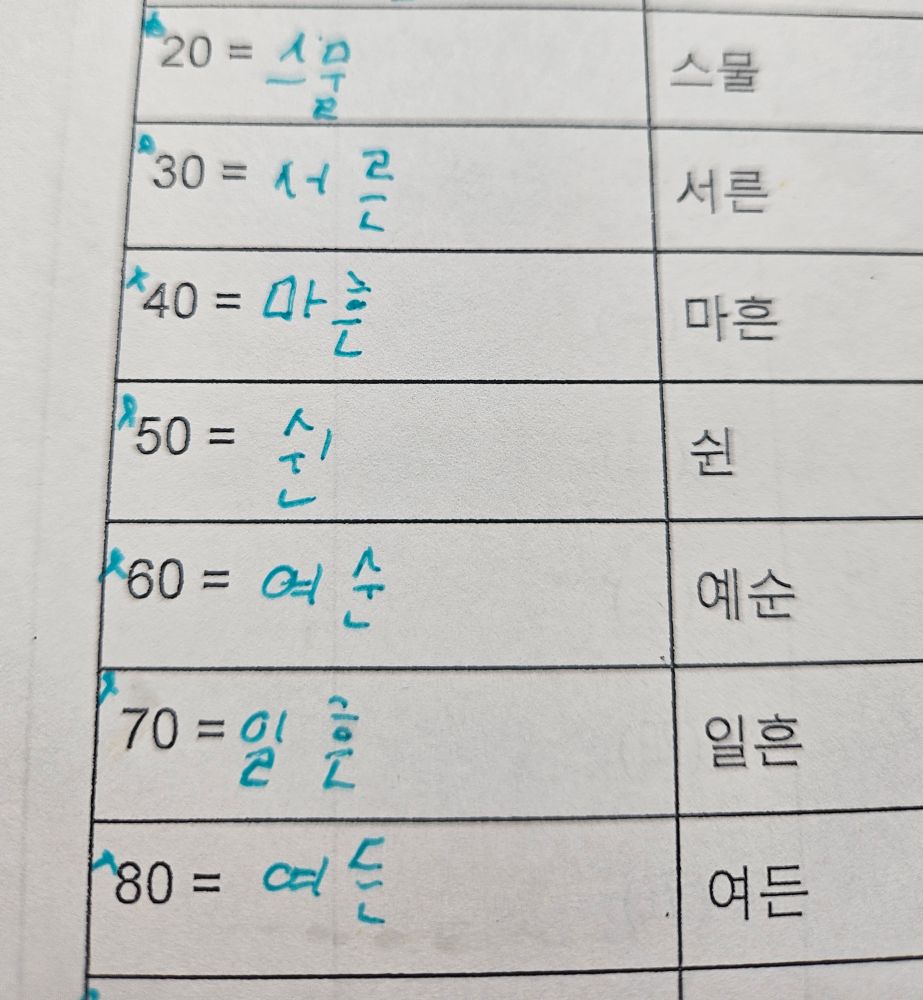 20 = 스물 스물
30 = 서른 서른
40 = 마흔 마흔
50 = 쉰 쉰
60 = 여순 예순
70 = 일흔 일흔
80 = 여든 여든